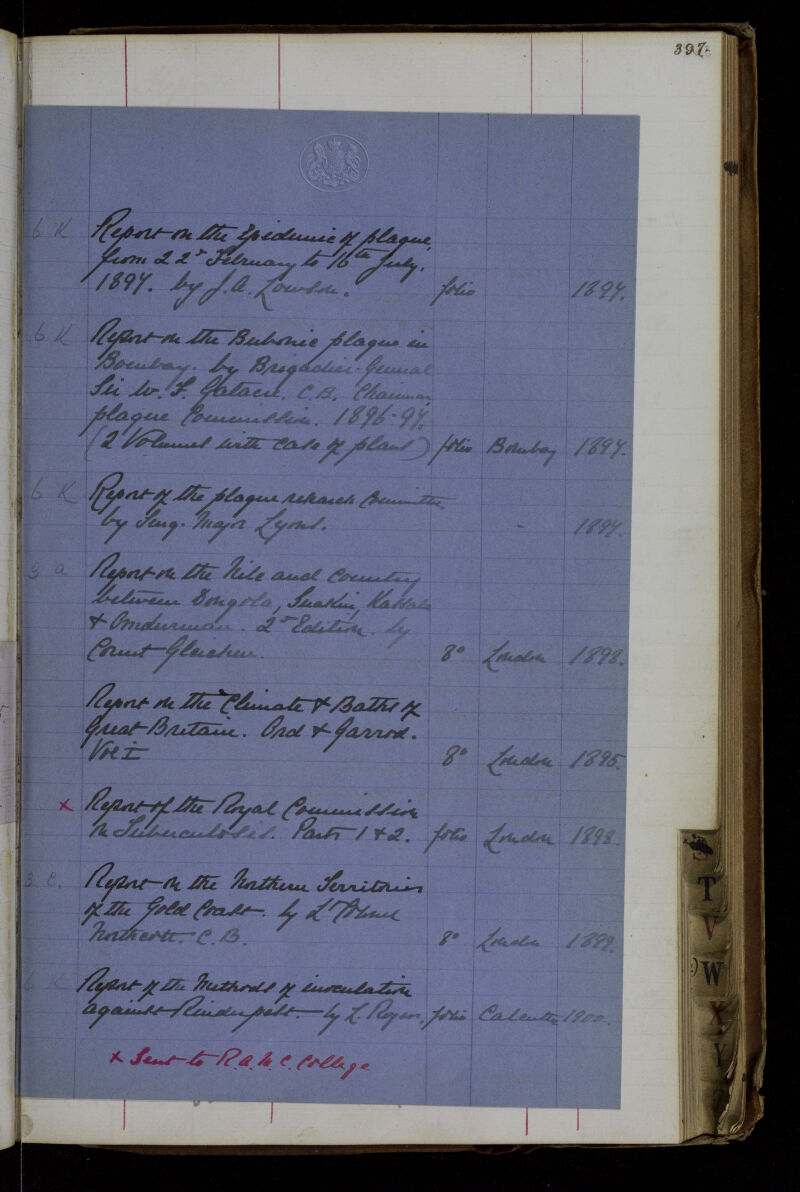 397
6 K Report on the Epidemic of plague
from 22d February to 16th July.
1897. by J. A. Lowson. folio 1897.
6 K Report on the Bubonic plague in
Bombay. by Brigadier-General
Sir W. F. Gatacre. C.B. Chairman
plague Commission. 1896-97.
(2 Volumes with case of plans) folio Bombay 1897.
6 K Report of the plague research Committee.
by Surg. Major Lyons. - 1897.
3 a Report on the Nile and Country
between Dongola, Suakin, Kassala
& Omdurman. 2d Edition. by
Count Gleichen. 8° London 1898.
Report on the Climate & Baths of
Great Britain. Ord & Garrod.
Vol I 8° London 1895.
x Report of the Royal Commission
on Tuberculosis. Parts 1 & 2. folio London 1898.
3 c. Report on the Northern Territories
of the Gold Coast. by Lt Colonel
Northcott. C.B. 8° London 1899.
6 K Report of the Methods of inoculation
against Rinderpest. by L. Rogers, folio Calcutta 1900.
x Sent to R.A.M.C. College
T
V
W
X
Y